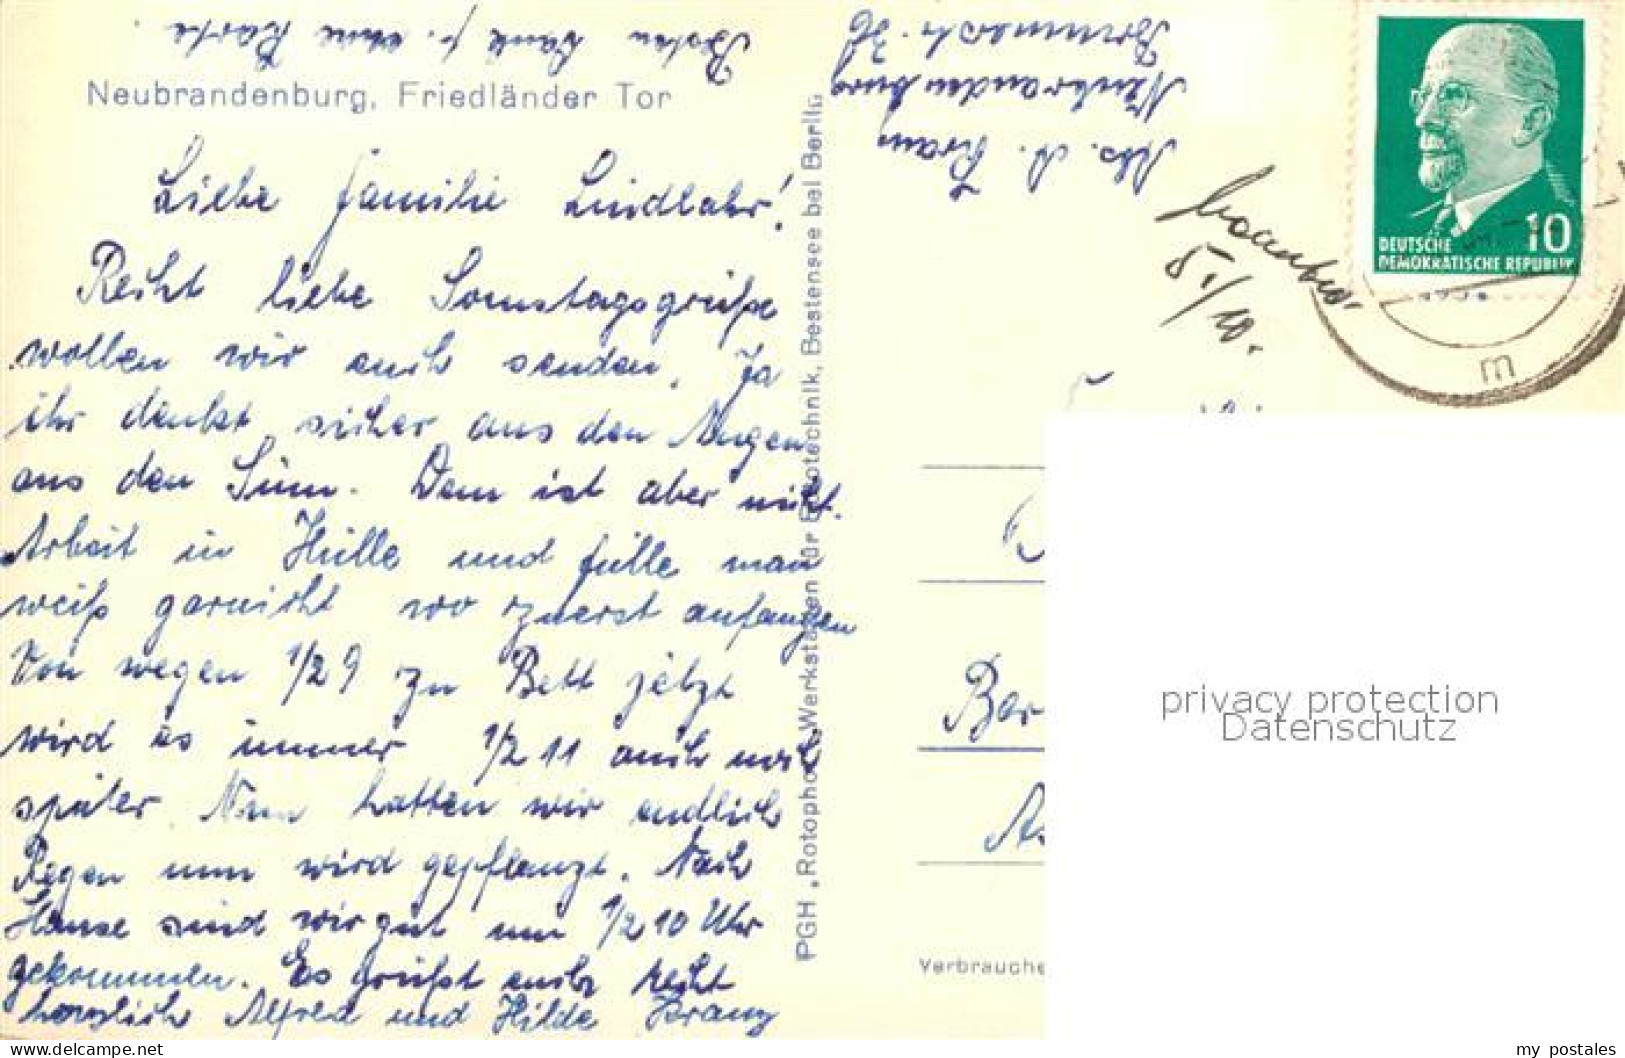 Besten Dank f. eure Karte.
Neubrandenburg, Friedländer Tor
Liebe Familie Lindlahr!
Recht liebe Sonnstagsgrüße
wollen wir euch senden. Ja
ihr denkt sicher aus den Augen
aus den Sinn. Dem ist aber nicht.
Arbeit in Hülle und fülle man
weiß garnicht wo zuerst anfangen
Von wegen 1/2 9 zu Bett jetzt
wird es immer 1/2 11 auch noch
später. Nun hatten wir endlich
Regen nun wird gepflanzt. Nach
Hause sind wir gut um 1/2 10 Uhr
gekommen. Es grüßt euch recht
herzlich Alfred und Hilde Kranz
PGH „Rotophot", Werkstätten für Fototechnik, Bestensee bei Berlin
Abs. A. Kranz
Neubrandenburg
5./10.
DEUTSCHE
DEMOKRATISCHE REPUBLIK
10
m
Ber
Verbrauche
privacy protection
Datenschutz
the delcampe.net website
my_postales